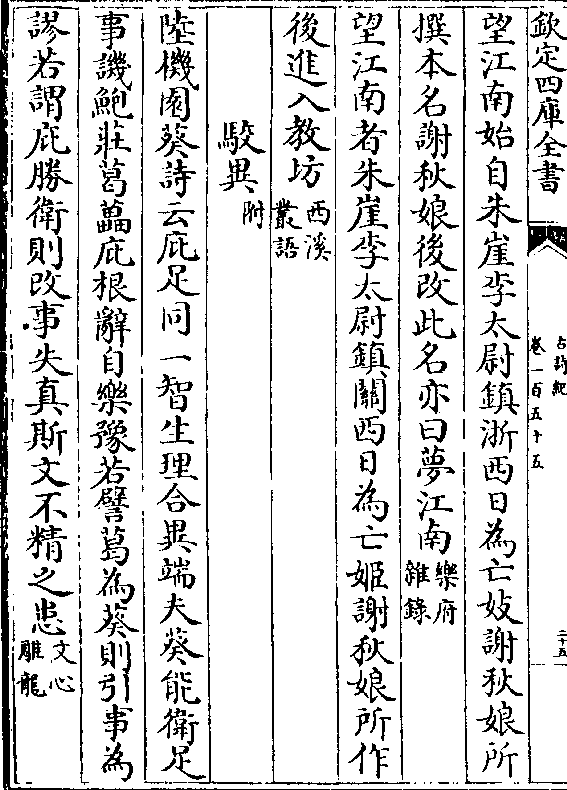 欽定四庫全書
古詩紀
卷一百五十五
二十五
望江南始自朱崖李太尉鎮浙西日為亡妓謝秋娘所
撰本名謝秋娘後改此名亦曰夢江南樂府雜錄
望江南者朱崖李太尉鎮關西日為亡姬謝秋娘所作
後進入教坊西溪叢語
駁異附
陸機園葵詩云庇足同一智生理合異端夫葵能衛足
事譏鮑莊葛藟庇根辭自樂豫若譬葛為葵則引事為
謬若謂庇勝衛則改事失真斯文不精之患文心雕龍